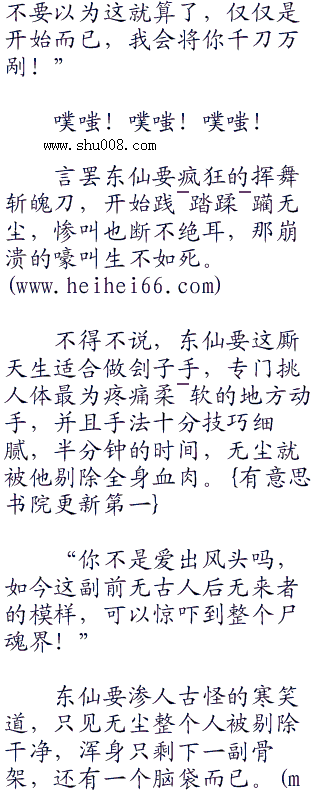 不要以为这就算了，仅仅是
开始而已，我会将你千刀万
剐！”
噗嗤！噗嗤！噗嗤！
www.shu008.com
言罢东仙要疯狂的挥舞
斩魄刀，开始践¯踏蹂¯躏无
尘，惨叫也断不绝耳，那崩
溃的嚎叫生不如死。
(www.heihei66.com)
不得不说，东仙要这厮
天生适合做刽子手，专门挑
人体最为疼痛柔¯软的地方动
手，并且手法十分技巧细
腻，半分钟的时间，无尘就
被他剔除全身血肉。{有意思
书院更新第一}
“你不是爱出风头吗，
如今这副前无古人后无来者
的模样，可以惊吓到整个尸
魂界！”
东仙要渗人古怪的寒笑
道，只见无尘整个人被剔除
干净，浑身只剩下一副骨
架，还有一个脑袋而已。(m